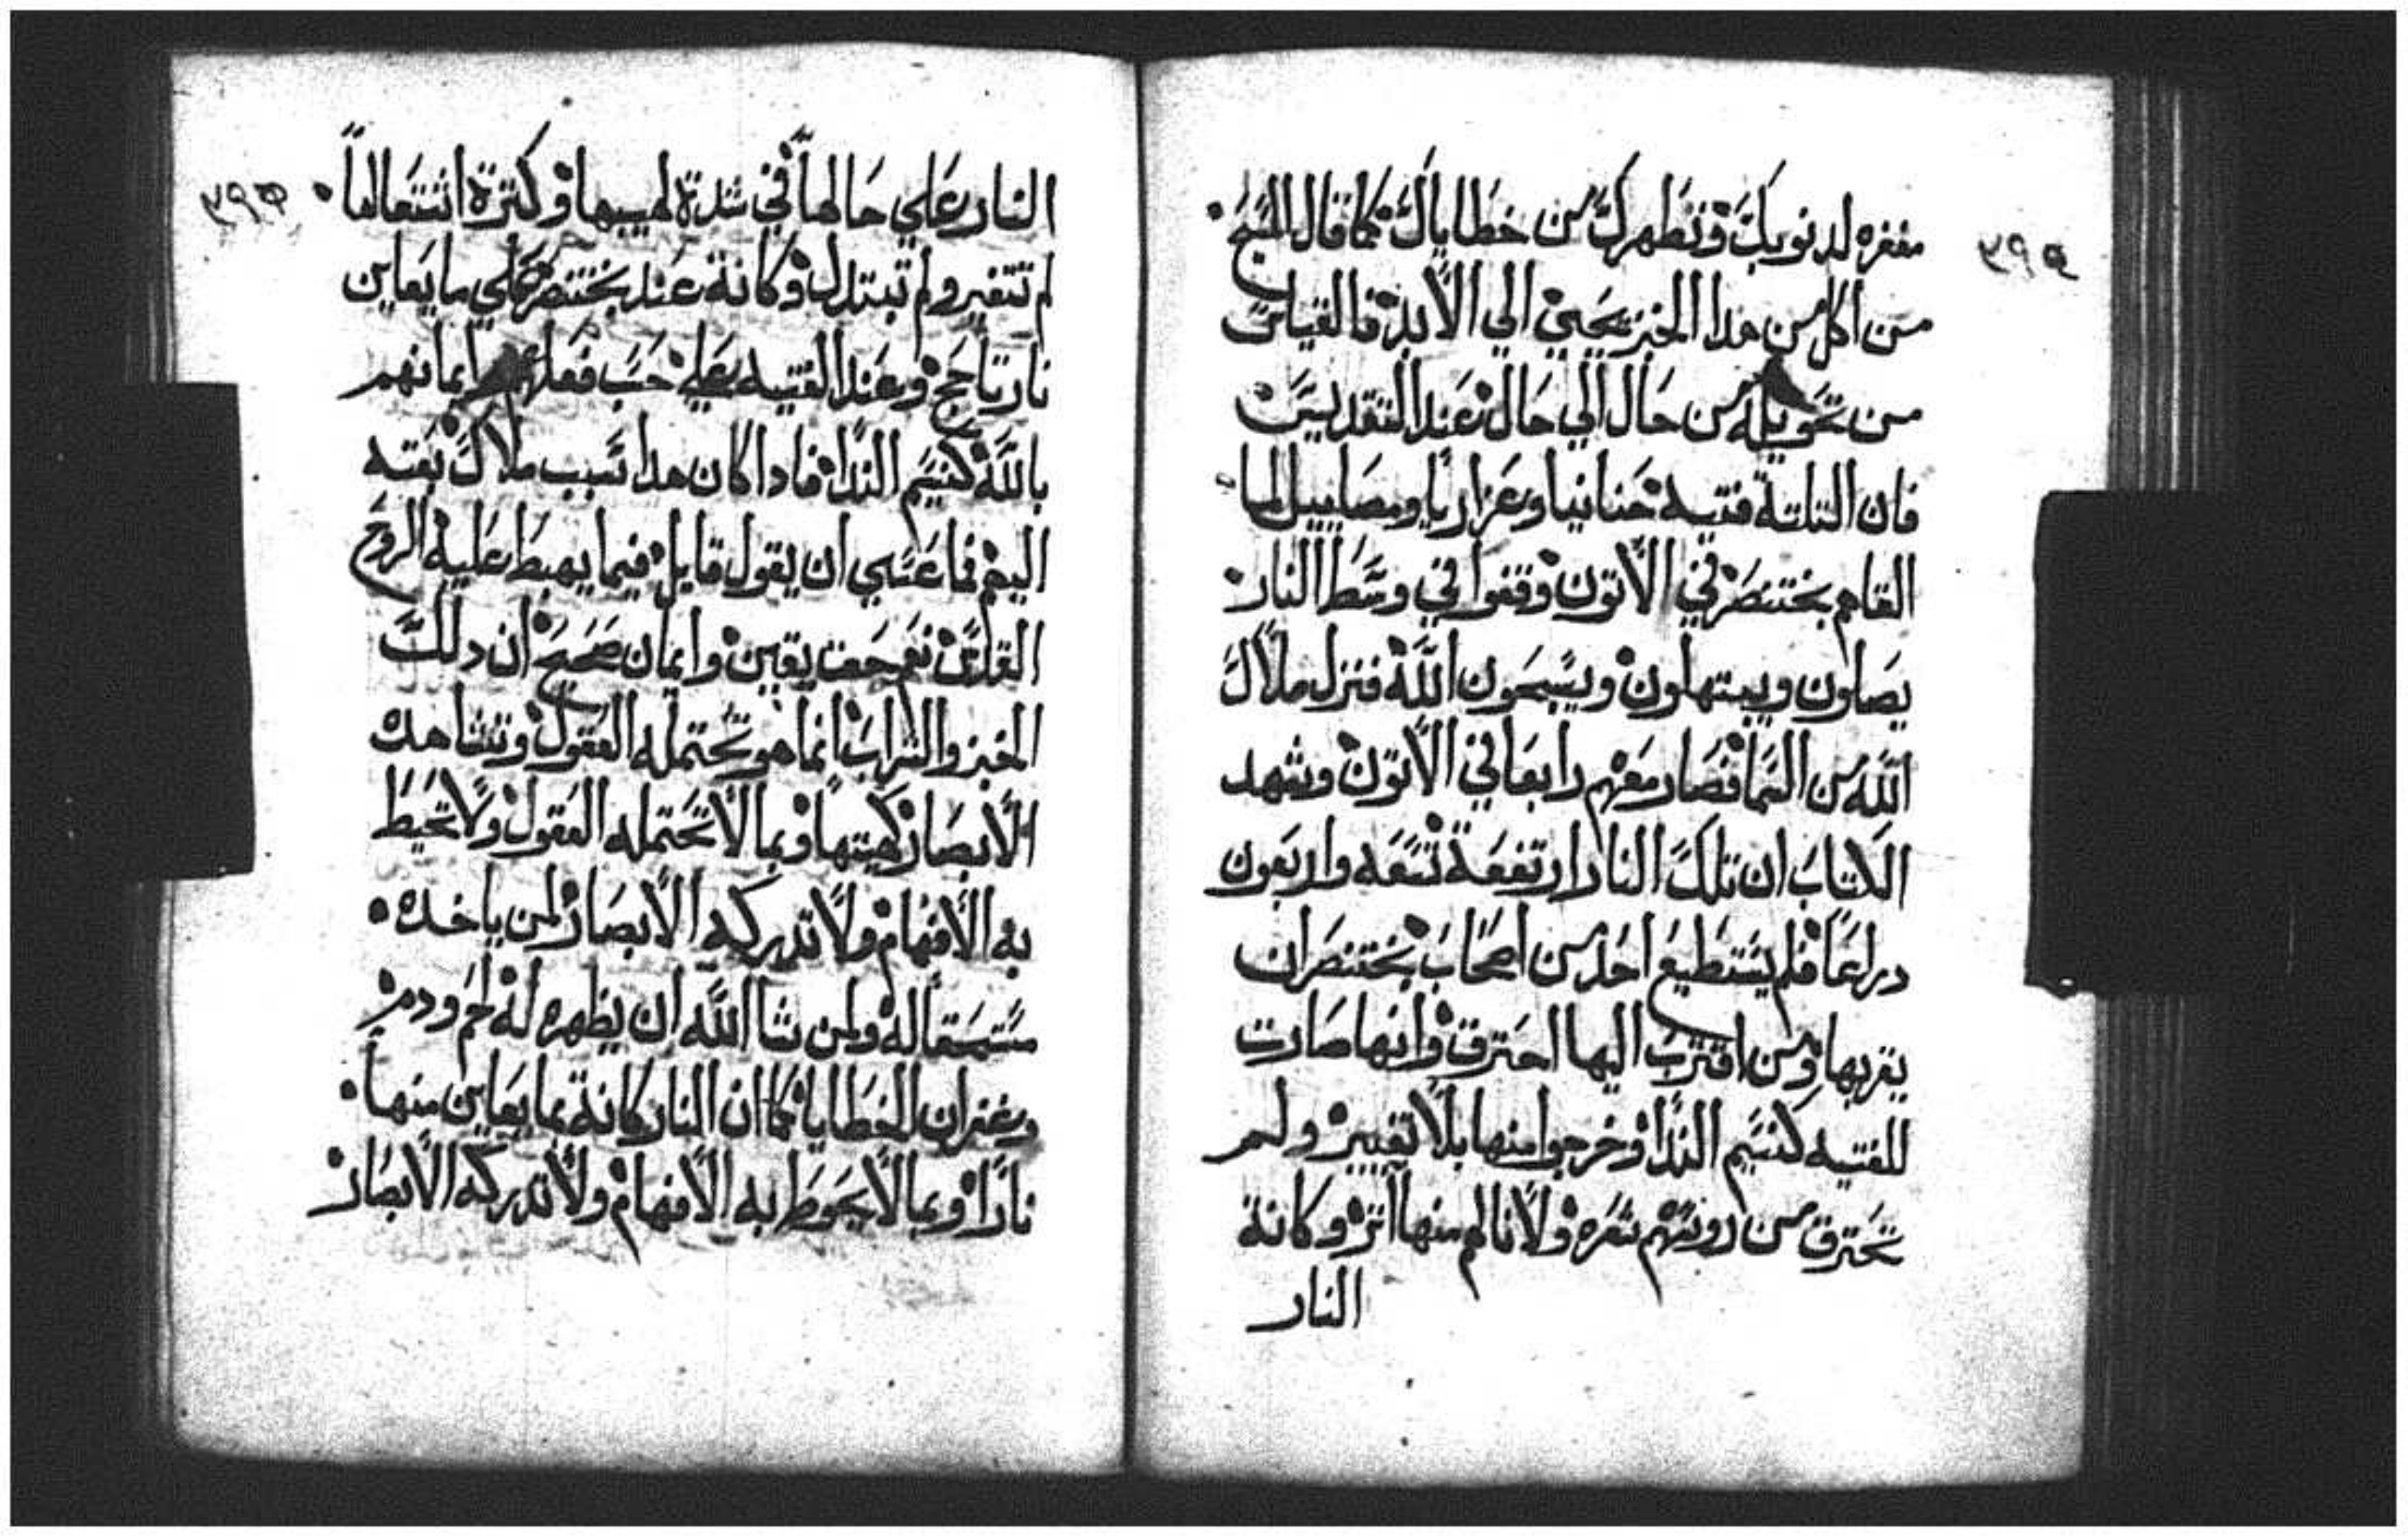 ٣٩٤
مغفره لدنوبك وتطهرك من خطاياك كما قال المسيح
من اكل من هدا الخبز يحيي الي الابد فما القياس
من تحويله من حال الي حال عند التقديس
فان التلتة فتيه حنانيا وعزاريا وميصاييل لما
القاهم بختنصر في الاتون وقفوا في وسط النار
يصلون ويبتهلون ويسبحون الله فنزل ملاك
الله من السما فصار معهم رابعا في الاتون وشهد
الكتاب ان تلك النار ارتفعة تسعه واربعون
دراعا فلم يستطيع احد من اصحاب بختنصر ان
يقربها ومن اقترب اليها احترق وانها صارت
للفتيه كنسيم الندا وخرجوا منها بلا تغيير ولم
تحترق من روسهم شعره ولا نالهم منها اثر وكانة
النار
٣٩٥
النار علي حالها في شدة لهيبها وكترة اشتعالها
لم تتغير ولم تبتدل وكانة عند بختنصر علي ما يعاين
نار تاجج وعند الفتيه علي حسب فعلهم وايمانهم
بالله كنسيم الندا فادا كان هدا سبب ملاك بعته
اليهم فما عسي ان يقول قايل فيما يهبط عليه الروح
القدس نعم حق يقين وايمان صحيح ان دلك
الخبز والشراب انما هو تحتمله العقول وتشاهده
الابصار كهيتها وبما لا تحتمله العقول ولا تحيط
به الافهام ولا تدركه الابصار لمن ياخده
مستحقا له ولمن شا الله ان يظهره له لحم ودم
وغفران الخطايا كما ان النار كانة بما يعاين منها
نارا وبما لا يحوط به الافهام ولا تدركه الابصار